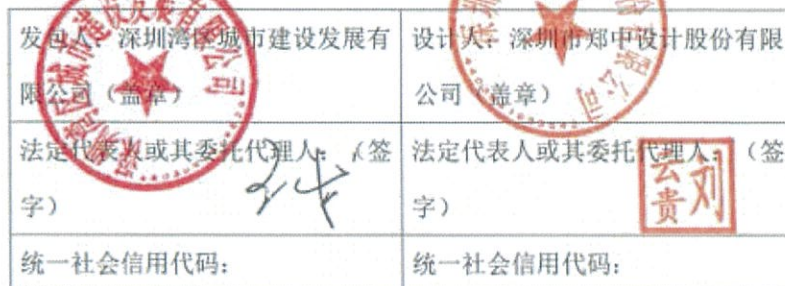 发包人：深圳湾区城市建设发展有
限公司（盖章）
设计人：深圳市郑中设计股份有限
公司（盖章）
法定代表人或其委托代理人：（签
字）
法定代表人或其委托代理人：（签
字）
刘
云贵
统一社会信用代码：
统一社会信用代码：